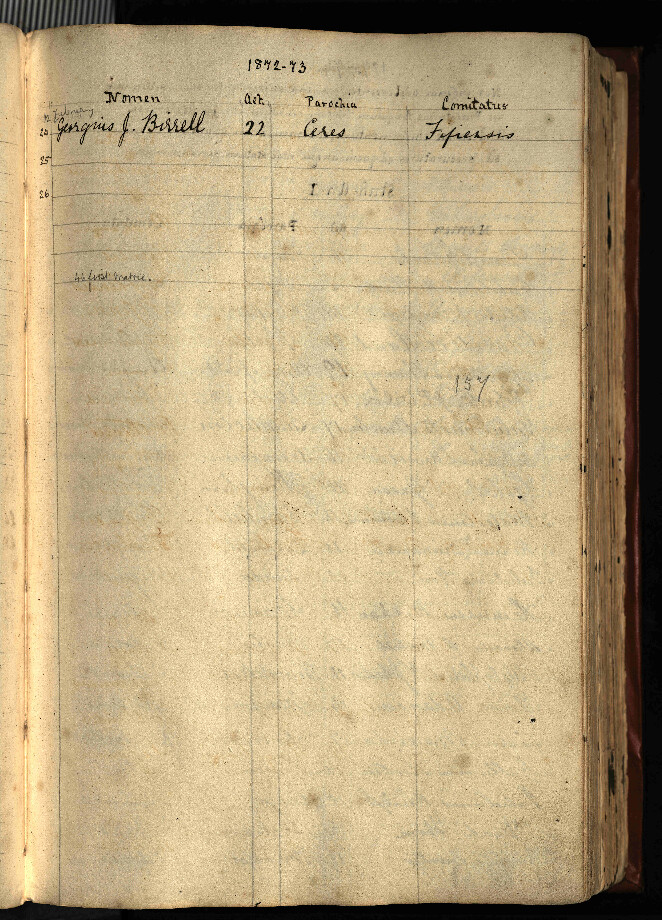 1872-73
Nomen Aet. Parochia Comitatus
February
24 Georgius J. Birrell 22 Ceres Fifensis
25
26
matric.
157